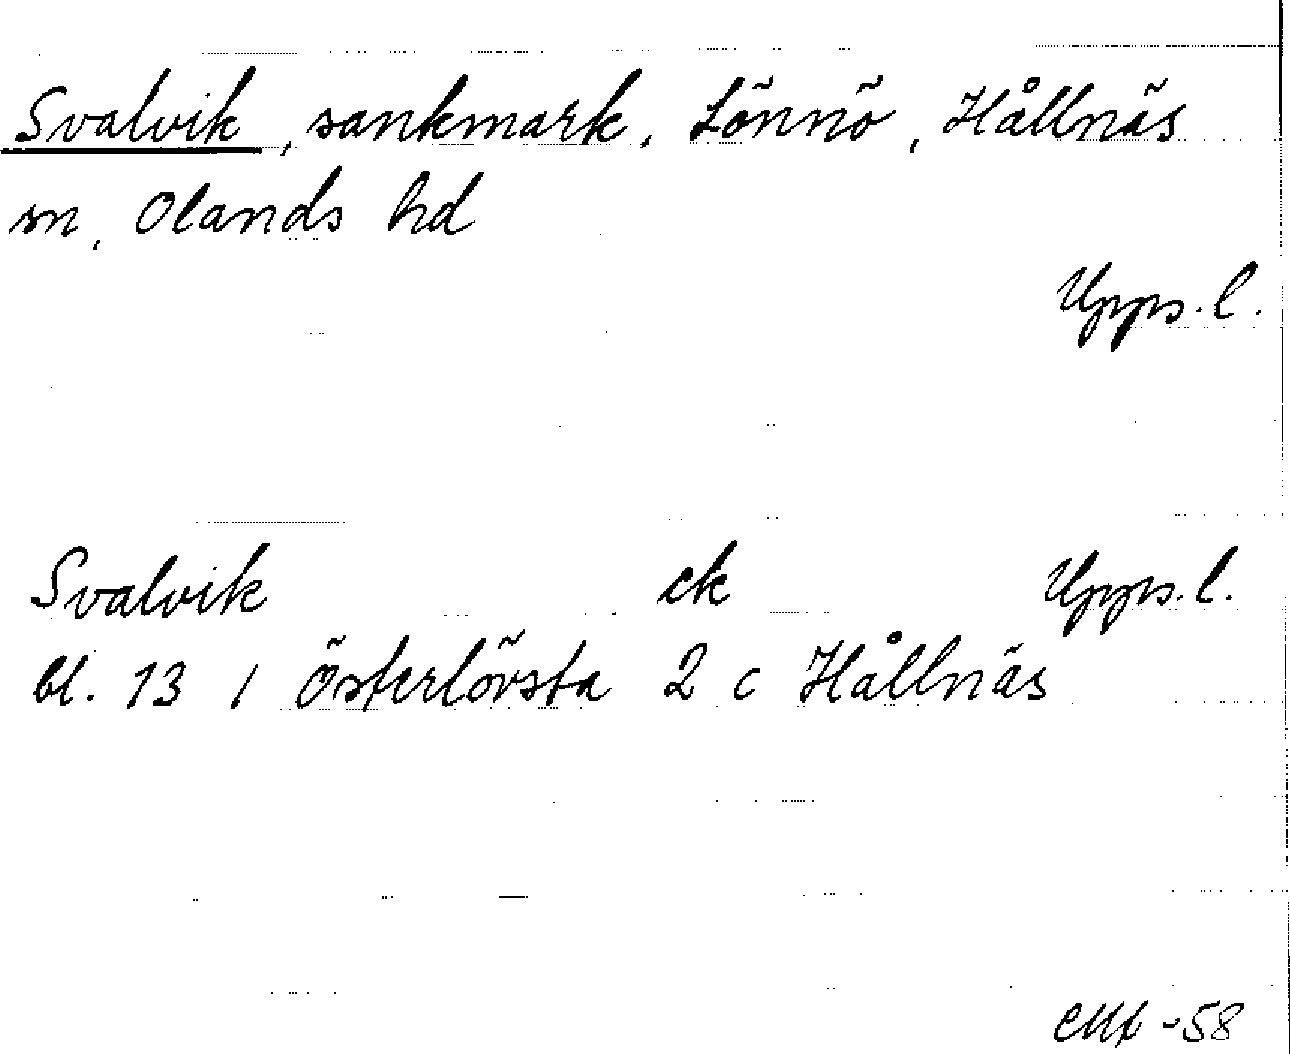 Svalvik, sankmark, Lönnö, Hållnäs
sn, Olands hd
Upps. l.
Svalvik ek Upps. l.
bl. 13 / Österlövsta 2 c Hållnäs
-58